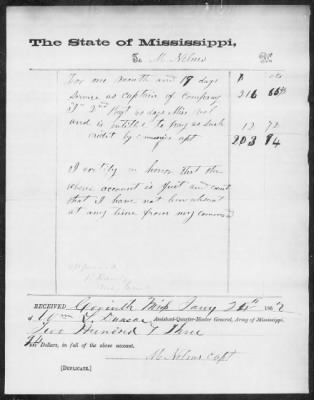 The State of Mississippi,
To M Nelms Dr.
For one month and 19 days $ cts
Service as Captain of Company 216 66
2nd Regt 60 days Miss Vol
and is entitled to pay as such 12 72
credit by 203 94
I certify on honor that the
above account is just and
that I have not been absent
at any time from my command
RECEIVED Corinth Miss Jany 186
of Wm Assistant-Quarter-Master General, Army of Mississippi,
Two Hundred & Three
94/100 Dollars, in full of the above account.
M Nelms Capt
[DUPLICATE.]